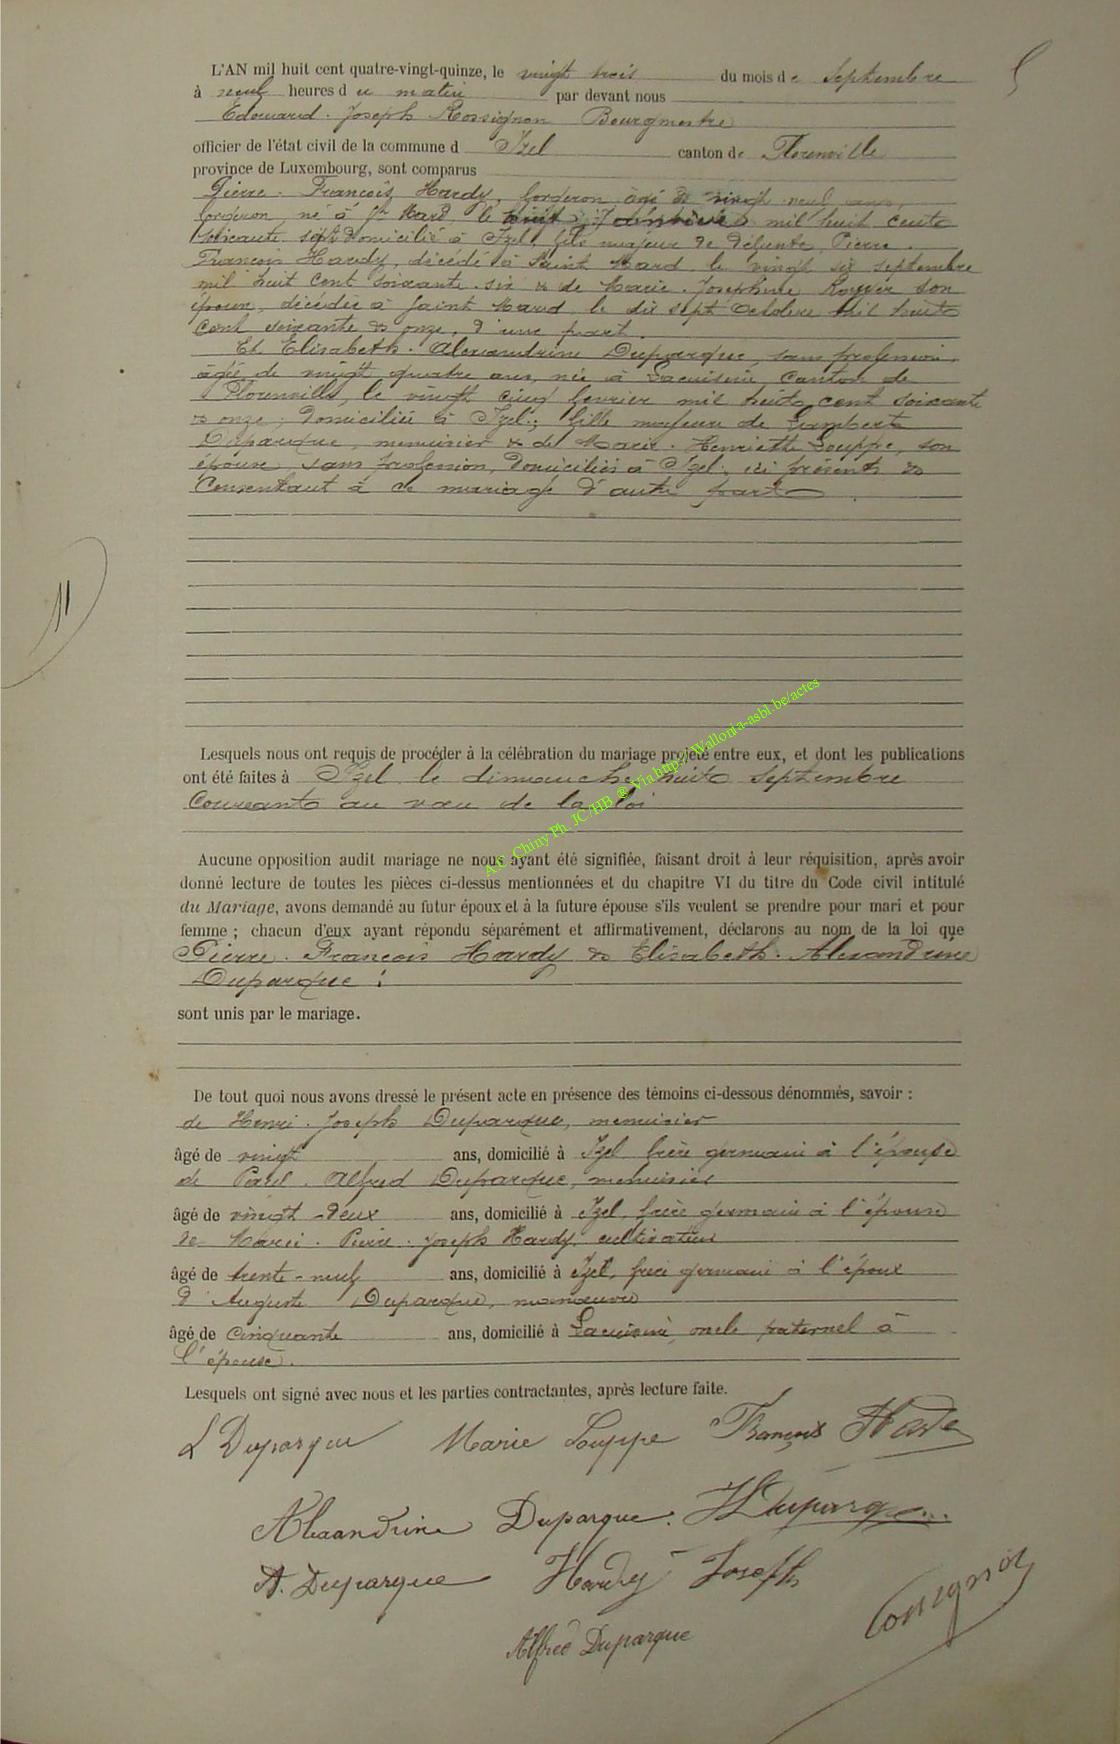 L'AN mil huit cent quatre-vingt-quinze, le vingt trois du mois de Septembre
à neuf heures du matin par devant nous
Edouard. Joseph Rossignon Bourgmestre
officier de l'état civil de la commune d Izel canton de Florenville
province de Luxembourg, sont comparus
Pierre. François Hardy, forgeron âgé de vingt neuf ans,
forgeron, né à St Mard, le huit Janvier mil huit cent
soixante sept domicilié à Izel, fils majeur de défunts, Pierre.
François Hardy, décédé à Saint Mard, le vingt six septembre
mil huit cent soixante. six & de Marie. Joséphine Royer son
épouse, décédée à Saint Mard, le dix sept Octobre mil huit
cent soixante & onze, d'une part.
Et Elisabeth. Alexandrine Duparque, sans profession,
âgée de vingt quatre ans, née à Lacuisine, canton de
Florenville, le vingt cinq février mil huit cent soixante
& onze, domiciliée à Izel; fille majeure de Lambert
Duparque, menuisier & de Marie. Henriette Louppe, son
épouse, sans profession, domiciliés à Izel, ici présents &
consentant à ce mariage d'autre part.
11
Lesquels nous ont requis de procéder à la célébration du mariage projeté entre eux, et dont les publications
ont été faites à Izel le dimanche huit septembre
courant au vœu de la loi
A.C. Chiny Ph. JC/HB ® Via http://Wallonia-asbl.be/actes
Aucune opposition audit mariage ne nous ayant été signifiée, faisant droit à leur réquisition, après avoir
donné lecture de toutes les pièces ci-dessus mentionnées et du chapitre VI du titre du Code civil intitulé
du Mariage, avons demandé au futur époux et à la future épouse s'ils veulent se prendre pour mari et pour
femme ; chacun d'eux ayant répondu séparément et affirmativement, déclarons au nom de la loi que
Pierre. François Hardy & Elisabeth. Alexandrine
Duparque;
sont unis par le mariage.
De tout quoi nous avons dressé le présent acte en présence des témoins ci-dessous dénommés, savoir :
de Henri. Joseph Duparque, menuisier
âgé de vingt ans, domicilié à Izel frère germain à l'épouse
de Paul. Alfred Duparque, menuisier
âgé de vingt-deux ans, domicilié à Izel, frère germain à l'épouse
de Pierre. Joseph Hardy, cultivateur
âgé de trente-neuf ans, domicilié à Izel, frère germain à l'époux
d'Auguste Duparque, manœuvre
âgé de cinquante ans, domicilié à Lacuisine, oncle paternel à
l'épouse.
Lesquels ont signé avec nous et les parties contractantes, après lecture faite.
L Duparque Marie Louppe François Hardy
Alexandrine Duparque. H Duparque
A. Duparque Hardy Joseph
Rossignon
Alfred Duparque